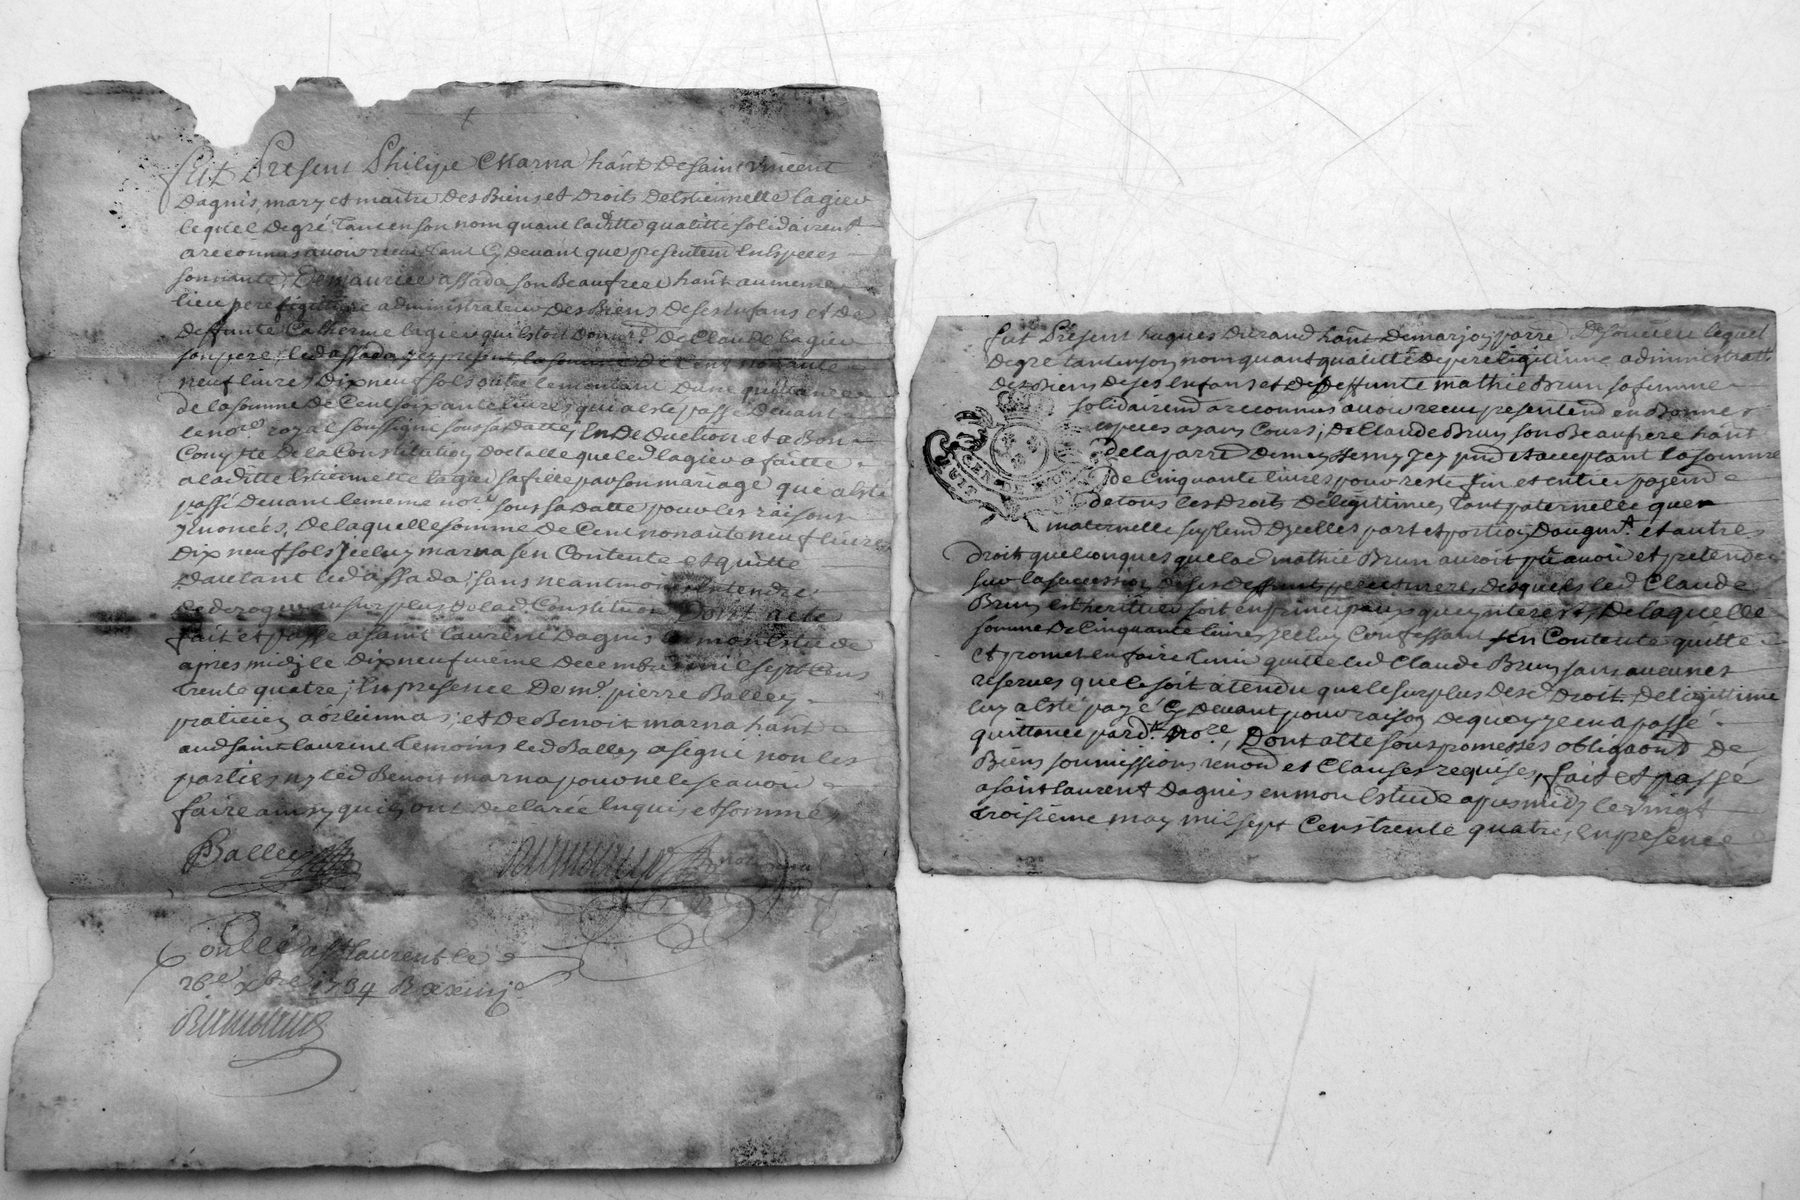 Fut Present Philipe Marna hant de saint Vincent
Dagnis, mary et maitre des Biens et Droits destiennette lagier
lequel degré tant en son nom quant laditte qualitté solidairent
a reconnus avoir receu tant cy devant que presentem en Especes
sonnante, de maurice assada son Beaufrere hant au meme
lieu pere administrateur des Biens de ses Enfans et de
deffunte Catherine lagier qui Estoit de Claude lagier
son pere, led assada icy present la somme de Cent nonante
neuf livres dix neuf sols outre le montant dune quittance
de la somme de Cent soixante livres qui a esté passé devant
le nore royal soussigné sous sa datte, En deduction et a Bon
Compte de la Constitution dotalle que led lagier a faitte
a laditte Estiennette lagier sa fille par son mariage qui a esté
passé devant le meme nore sous sa datte pour les raisons
y enoncés, de laquelle somme de Cent nonante neuf livres
dix neuf sols iceluy marna sen Contente et quitte
dautant led assada, sans neantmoins Entendre
deroger au surplus de lad. Constitution Dont acte
fait et passé a saint laurent dagnis En mon Estude
apres midy le dix neufvieme decembre mil sept Cens
trente quatre, En presence de me. pierre Balley
praticien a orliennas, et de Benoit marna hant
aud saint laurent temoins led Balley a signé non les
parties ny led Benoit marna pour ne le scavoir
faire ainsy quils ont declarée Enquis et sommés
Balley
Conllé a st laurent le
26e xbre 1734 R
Fut Present hugues Durand hant de marjon parre de soucieu lequel
degré tant en son nom quant qualitté de pere legitime administratr
des Biens de ses Enfans et de deffunte mathie Brun sa femme
solidairemt a reconnus avoir receu presentemt en Bonnes
especes ayans Cours, de Claude Brun son Beaufrere hant
de la parre de icy pnt et acceptant la somme
de Cinquante livres pour reste fin et entier payemt
de tous les droits de legitimes tant paternelle que
maternelle suplemt dicelles part et portion daugmt. et autres
droits quelconques que lad mathie Brun auroit pû avoir et pretendre
sur la succession de ses deffunt pere et mere, desquels led Claude
Brun est heritier soit en principaux que interest, de laquelle
somme de Cinquante livres iceluy Confessant sen Contente quitte
et promet en faire tenir quitte led Claude Brun sans aucunes
reserves que ce soit atendu que le surplus desd droit de legittime
luy a esté payé Cy devant pour raison de quoy il en a passé
quittance pardt. nore, Dont acte sous promesses obligaons de
Biens soumissions renon et Clauses requises, fait et passé
a saint laurent dagnis en mon Estude apres midy le vingt
troisieme may mil sept Cens trente quatre, En presence